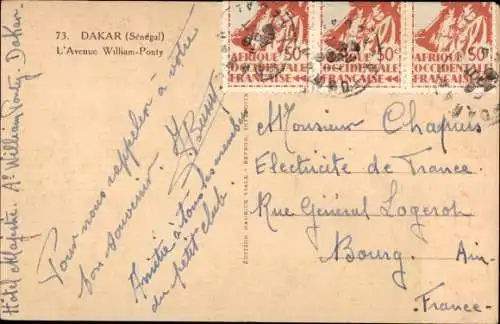 73. DAKAR (Sénégal)
L'Avenue William-Ponty
50c
AFRIQUE
OCCIDENTALE
FRANÇAISE
50c
AFRIQUE
OCCIDENTALE
FRANÇAISE
50c
AFRIQUE
OCCIDENTALE
FRANÇAISE
Hôtel Majestic. Av William Ponty. Dakar
Pour nous rappeler à votre
bon souvenir.
Amitié à tous les membres
du petit club.
EDITION MAURICE VIALE
Monsieur Chapuis
Electricité de France
Rue Général Logerot
Bourg Ain
France